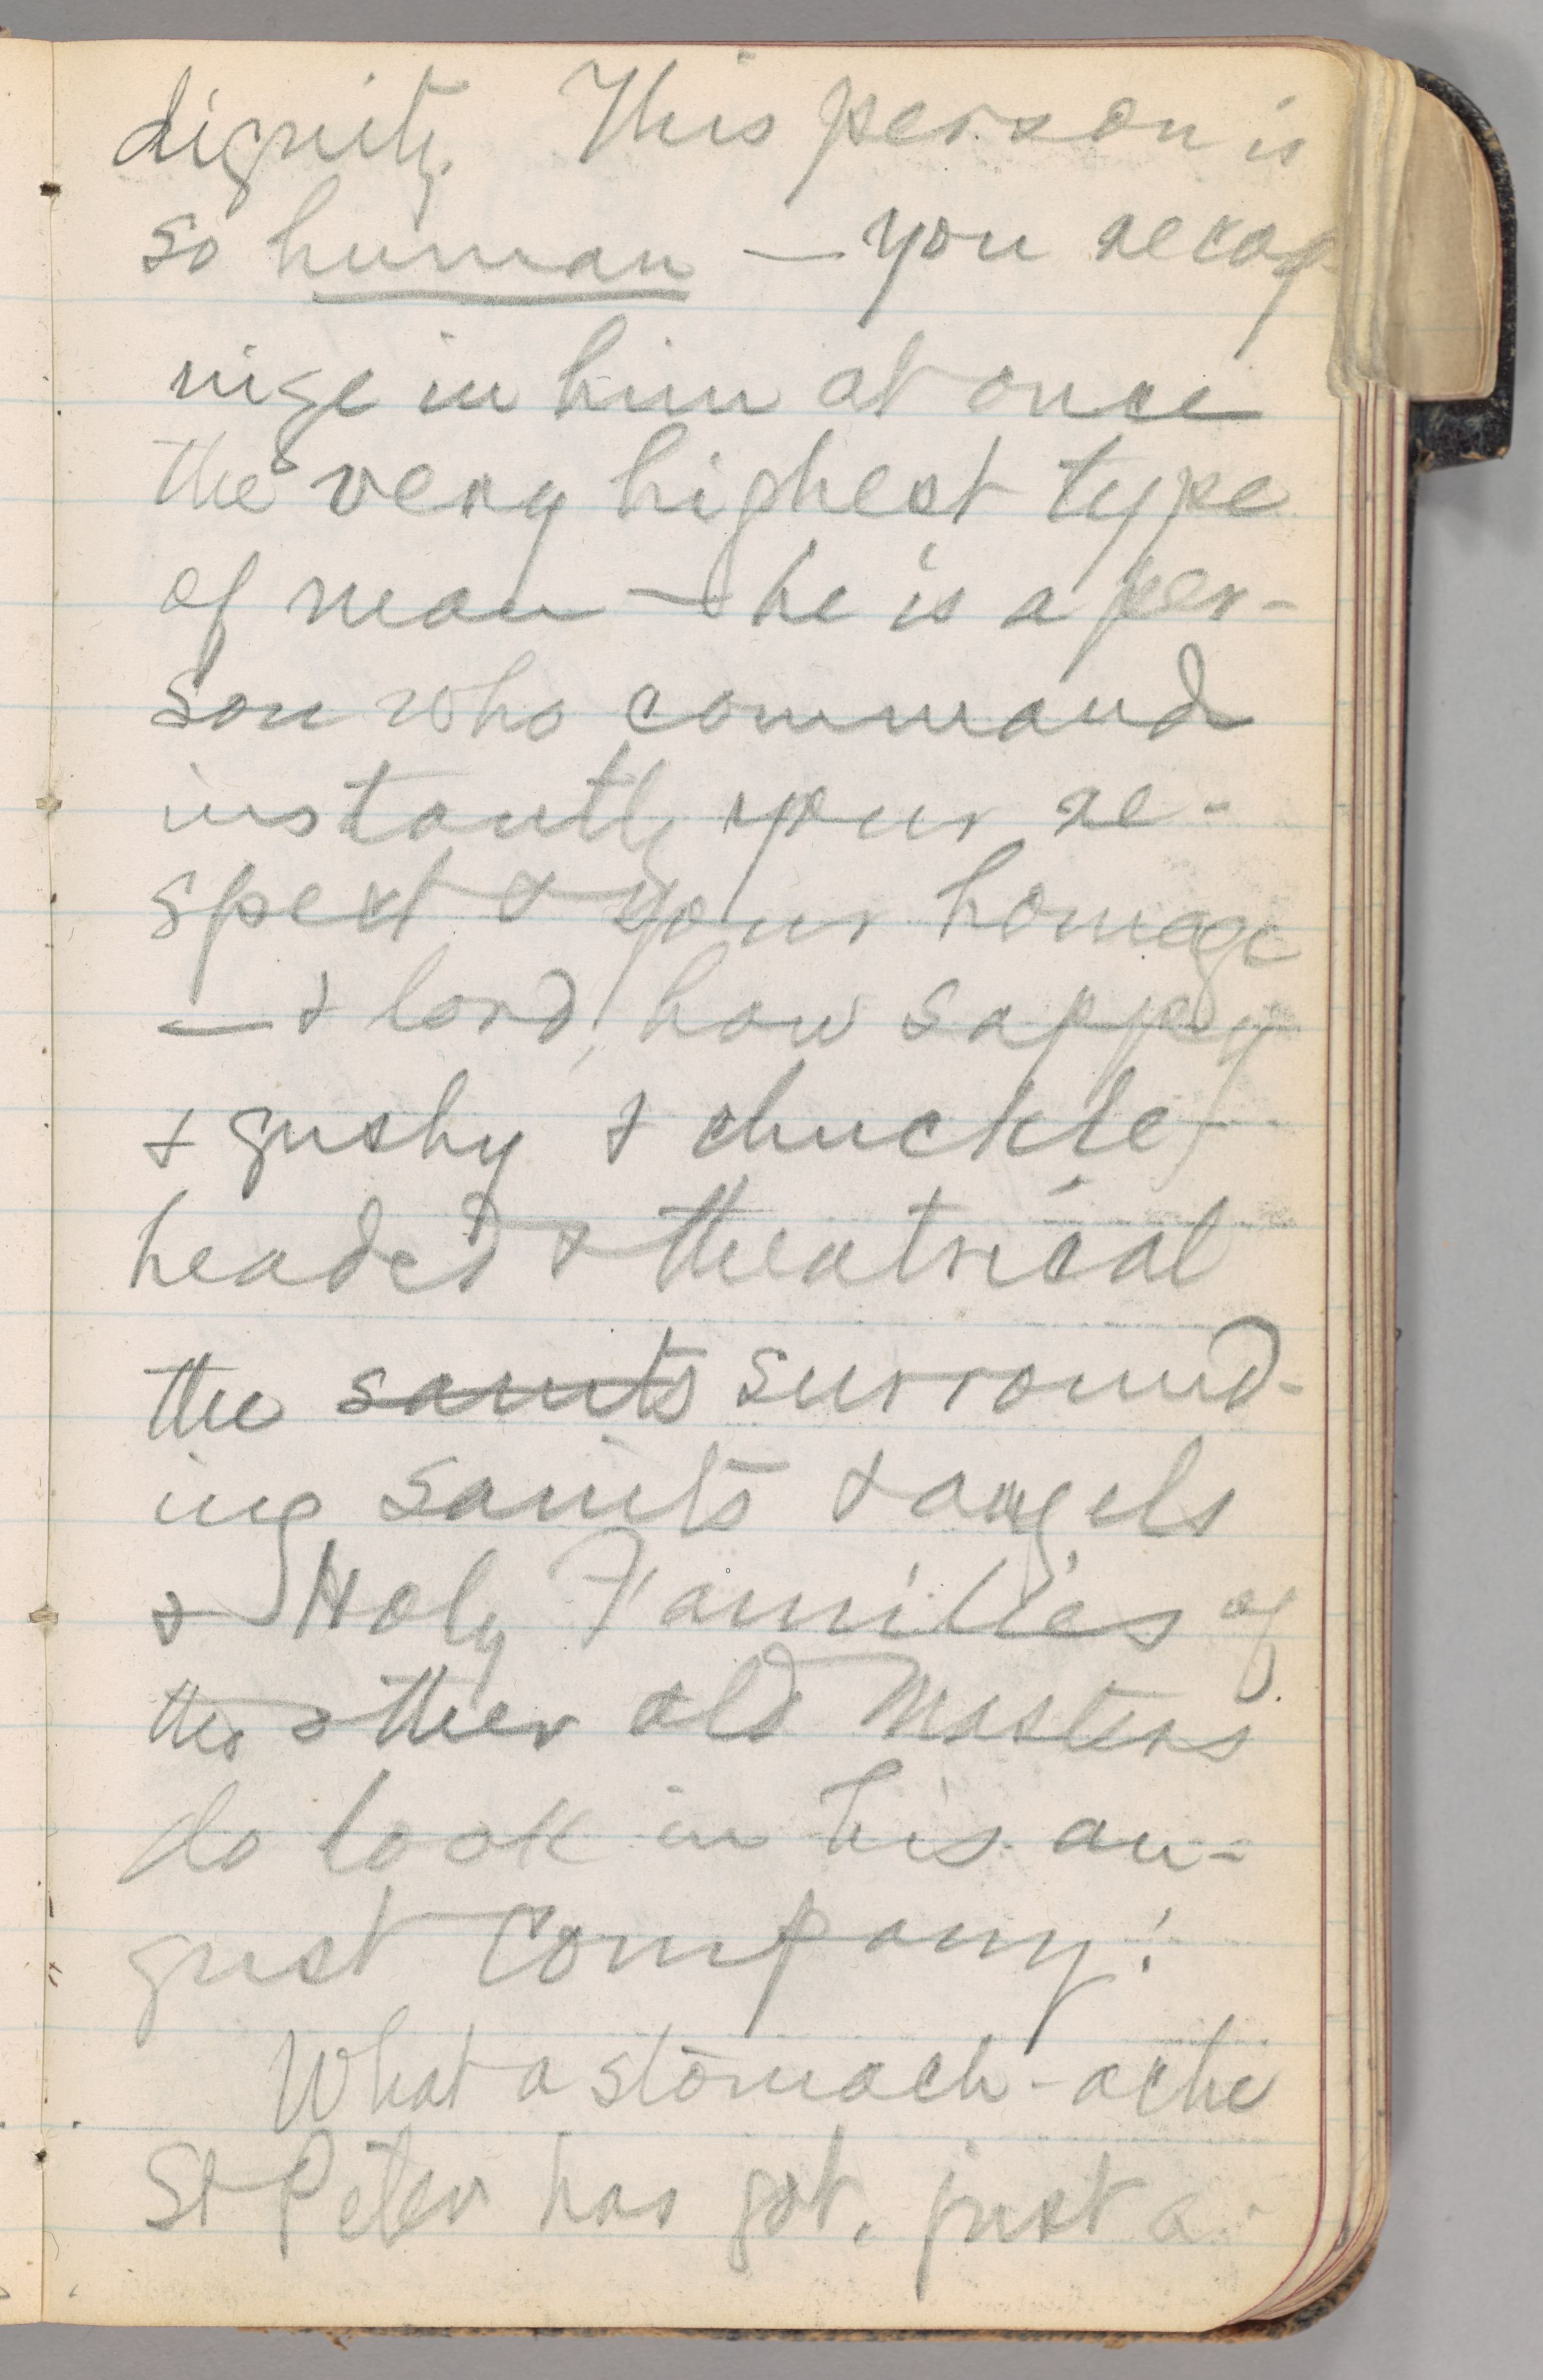 dignity. This person is
so human — you recog-
nize in him at once
the very highest type
of man — he is a per-
son who command
instantly your re-
spect & your homage
— & lord, how sappy
& gushy & chuckle-
headed & theatrical
the saints surround-
ing saints & angels
& Holy Families of
the other old Masters
do look in his au-
gust company!
What a stomach-ache
St Peter has got, just a